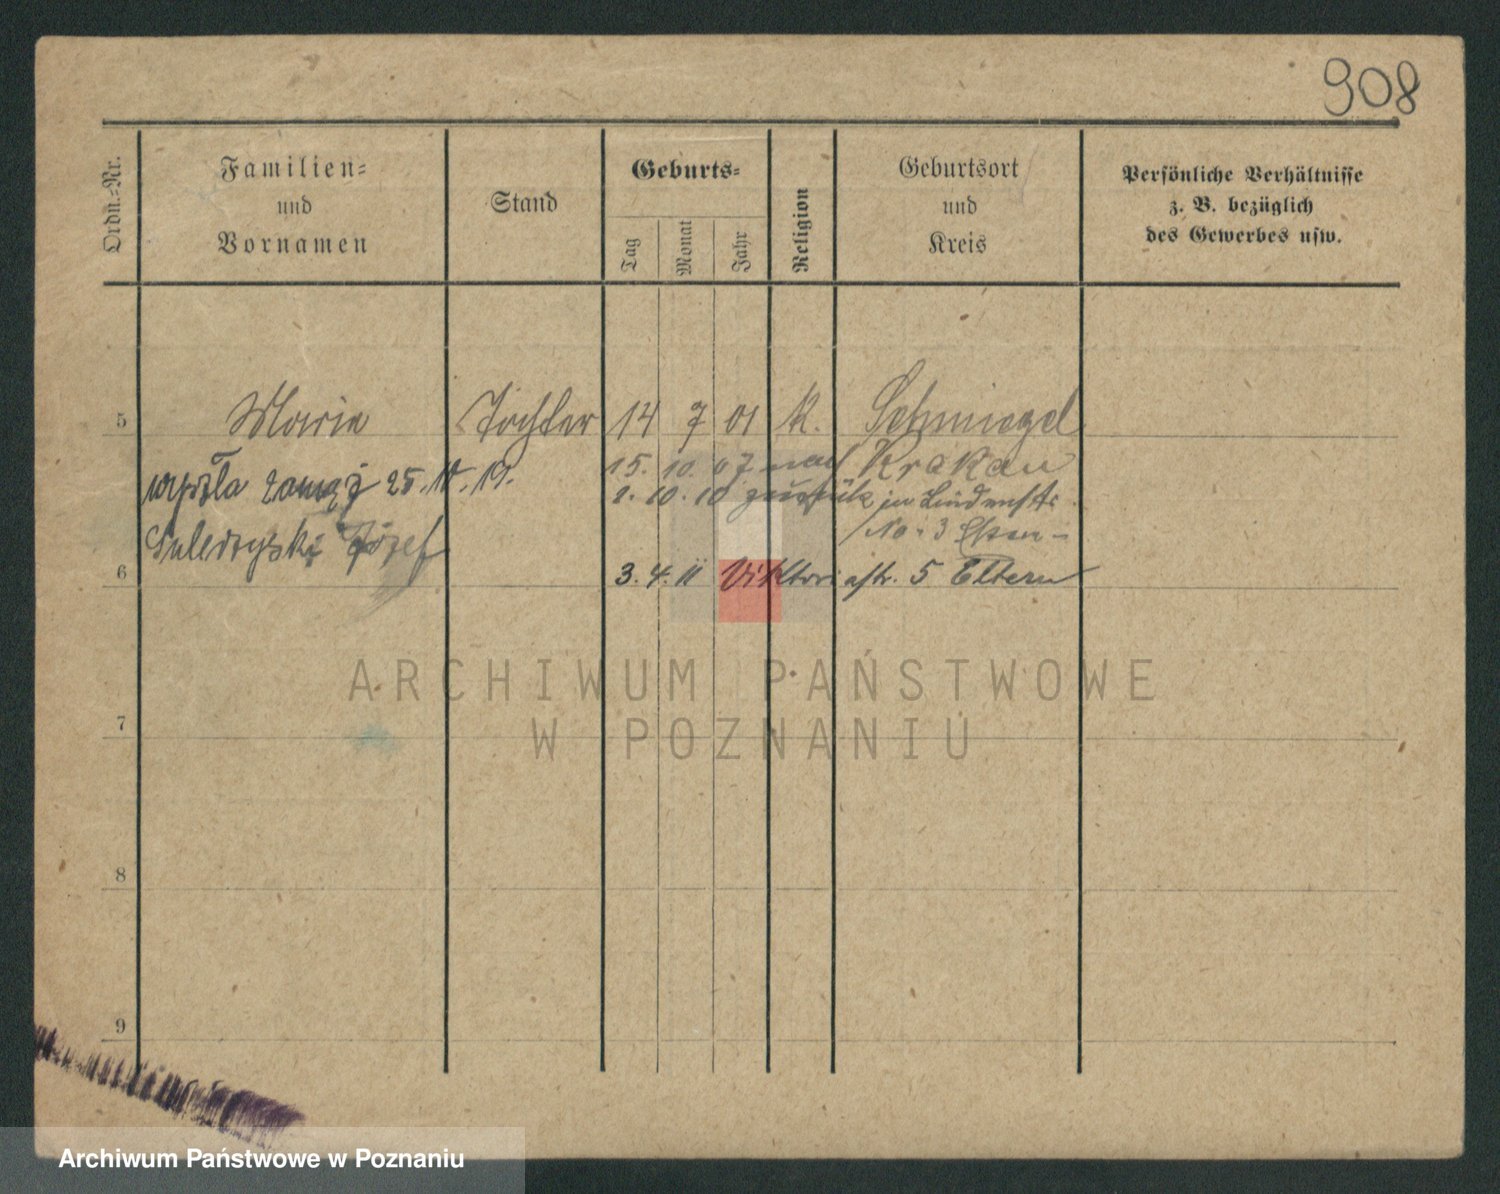 908
Ordn.-Nr.
Familien-
und
Vornamen
Stand
Geburts-
Tag
Monat
Jahr
Religion
Geburtsort
und
Kreis
Persönliche Verhältnisse
z. B. bezüglich
des Gewerbes usw.
5 Marie Tochter 14 7 01 K. Schmiegel
15. 10. 07 nach Krakau
wyszła zamąż 25. 11. 19.
2. 10. 10 zurück in Lindenstr.
No. 3
Józef
6 3. 4. 11 Viktoriastr. 5 Eltern
7
8
9
ARCHIWUM PAŃSTWOWE
W POZNANIU
Archiwum Państwowe w Poznaniu